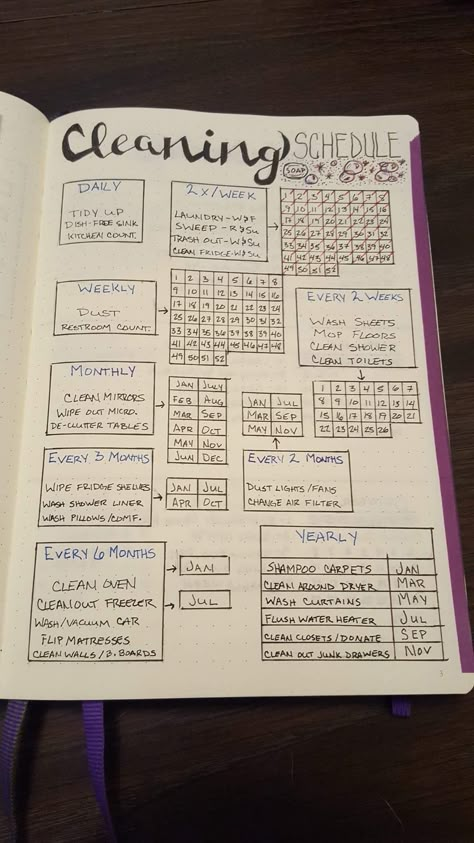 Cleaning SCHEDULE
SOAP
DAILY
TIDY UP
DISH-FREE SINK
KITCHEN COUNT.
2x/WEEK
LAUNDRY-W$F
SWEEP - R$Su
TRASH OUT-W$Su
CLEAN FRIDGE-W$Su
1 2 3 4 5 6 7 8
9 10 11 12 13 14 15 16
17 18 19 20 21 22 23 24
25 26 27 28 29 30 31 32
33 34 35 36 37 38 39 40
41 42 43 44 45 46 47 48
49 50 51 52
WEEKLY
DUST
RESTROOM COUNT.
1 2 3 4 5 6 7 8
9 10 11 12 13 14 15 16
17 18 19 20 21 22 23 24
25 26 27 28 29 30 31 32
33 34 35 36 37 38 39 40
41 42 43 44 45 46 47 48
49 50 51 52
EVERY 2 WEEKS
WASH SHEETS
MOP FLOORS
CLEAN SHOWER
CLEAN TOILETS
1 2 3 4 5 6 7
8 9 10 11 12 13 14
15 16 17 18 19 20 21
22 23 24 25 26
MONTHLY
CLEAN MIRRORS
WIPE OUT MICRO.
DE-CLUTTER TABLES
JAN JULY
FEB AUG
MAR SEP
APR OCT
MAY NOV
JUN DEC
JAN JUL
MAR SEP
MAY NOV
EVERY 2 MONTHS
DUST LIGHTS/FANS
CHANGE AIR FILTER
EVERY 3 MONTHS
WIPE FRIDGE SHELVES
WASH SHOWER LINER
WASH PILLOWS/COMF.
JAN JUL
APR OCT
EVERY 6 MONTHS
CLEAN OVEN
CLEAN OUT FREEZER
WASH/VACUUM CAR
FLIP MATRESSES
CLEAN WALLS/B.BOARDS
JAN
JUL
YEARLY
SHAMPOO CARPETS JAN
CLEAN AROUND DRYER MAR
WASH CURTAINS MAY
FLUSH WATER HEATER JUL
CLEAN CLOSETS/DONATE SEP
CLEAN OUT JUNK DRAWERS NOV
3